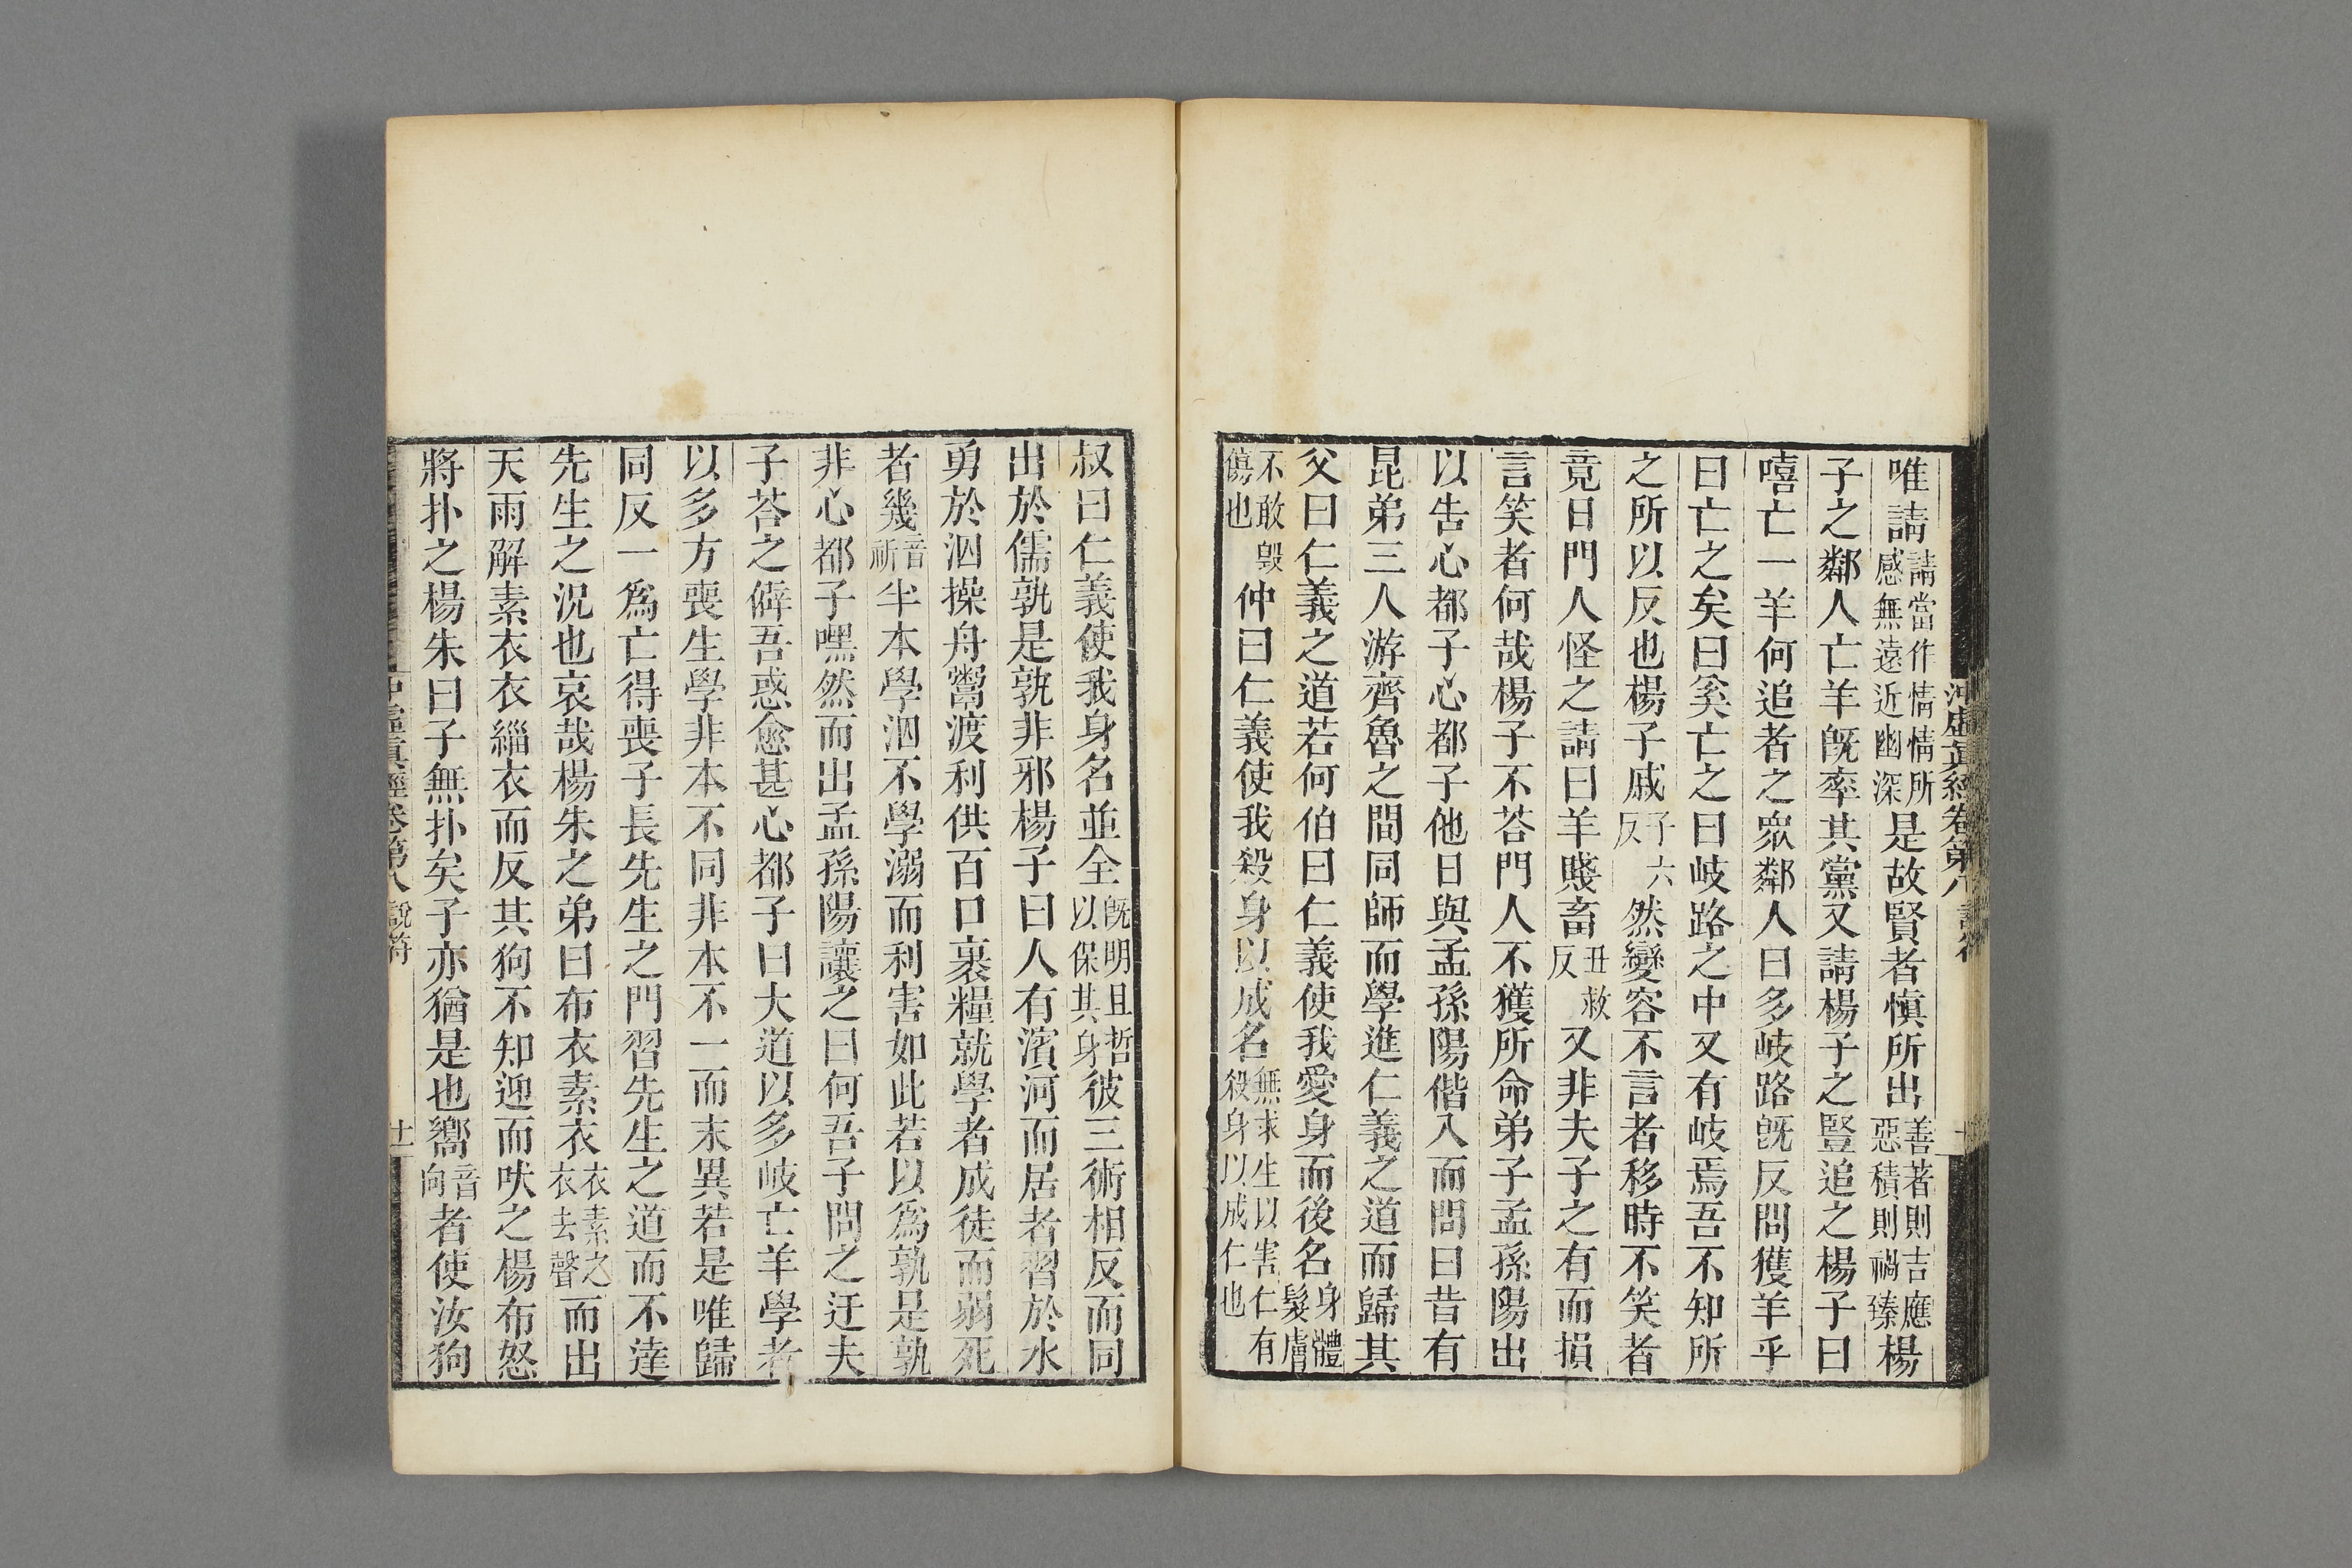 沖虛眞經卷第八 說符
唯請請當作情情所感無遠近幽深是故賢者慎所出善著則吉應惡積則禍臻楊
子之鄰人亡羊旣率其黨又請楊子之豎追之楊子曰
嘻亡一羊何追者之眾鄰人曰多岐路旣反問獲羊乎
曰亡之矣曰奚亡之曰岐路之中又有岐焉吾不知所
之所以反也楊子戚子六反然變容不言者移時不笑者
竟日門人怪之請曰羊賤畜丑救反又非夫子之有而損
言笑者何哉楊子不荅門人不獲所命弟子孟孫陽出
以告心都子心都子他日與孟孫陽偕入而問曰昔有
昆弟三人游齊魯之間同師而學進仁義之道而歸其
父曰仁義之道若何伯曰仁義使我愛身而後名身體髮膚
不敢毀傷也仲曰仁義使我殺身以成名無求生以害仁有殺身以成仁也
叔曰仁義使我身名並全旣明且哲以保其身彼三術相反而同
出於儒孰是孰非邪楊子曰人有濱河而居者習於水
勇於泅操舟鬻渡利供百口裹糧就學者成徒而溺死
者幾音祈半本學泅不學溺而利害如此若以爲孰是孰
非心都子嘿然而出孟孫陽讓之曰何吾子問之迂夫
子荅之僻吾惑愈甚心都子曰大道以多岐亡羊學者
以多方喪生學非本不同非本不一而末異若是唯歸
同反一爲亡得喪子長先生之門習先生之道而不達
先生之況也哀哉楊朱之弟曰布衣素衣衣素之衣去聲而出
天雨解素衣衣緇衣而反其狗不知迎而吠之楊布怒
將扑之楊朱曰子無扑矣子亦猶是也嚮音向者使汝狗
沖虛眞經卷第八 說符 廿一